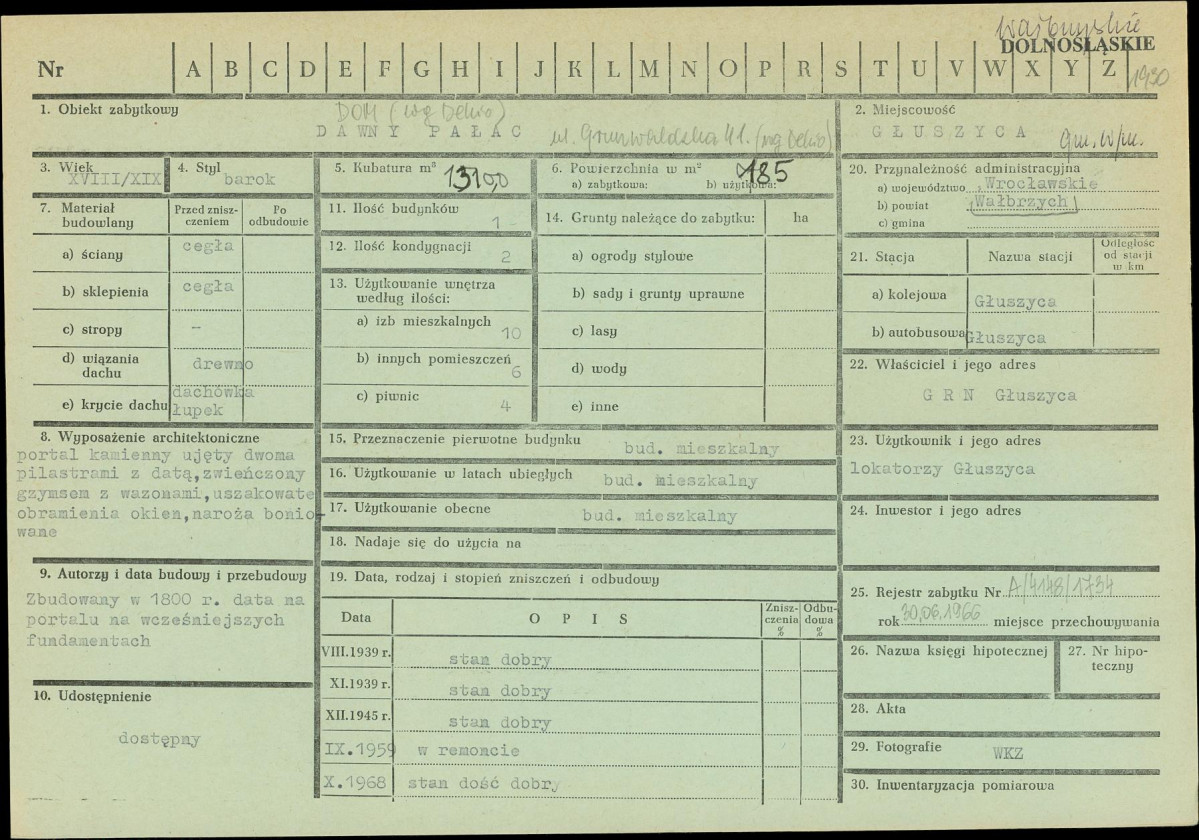 wałbrzyskie
DOLNOŚLĄSKIE
Nr A B C D E F G H I J K L M N O P R S T U V W X Y Z 1930
1. Obiekt zabytkowy
DOM (wg Dekio)
DAWNY PAŁAC ul. Grunwaldzka 41. (wg Dekio)
2. Miejscowość
GŁUSZYCA gm. w/m.
3. Wiek
XVIII/XIX
4. Styl
barok
5. Kubatura m³
1310,0
6. Powierzchnia w m²
185
a) zabytkowa: b) użytkowa:
7. Materiał budowlany
Przed zniszczeniem
Po odbudowie
a) ściany cegła
b) sklepienia cegła
c) stropy –
d) wiązania dachu drewno
e) krycie dachu dachówka łupek
8. Wyposażenie architektoniczne
portal kamienny ujęty dwoma
pilastrami z datą,zwieńczony
gzymsem z wazonami,uszakowate
obramienia okien,naroża bonio-
wane
9. Autorzy i data budowy i przebudowy
Zbudowany w 1800 r. data na
portalu na wcześniejszych
fundamentach
10. Udostępnienie
dostępny
11. Ilość budynków
1 -
12. Ilość kondygnacji
2
13. Użytkowanie wnętrza
według ilości:
a) izb mieszkalnych 10
b) innych pomieszczeń 6
c) piwnic 4
14. Grunty należące do zabytku: ha
a) ogrody stylowe
b) sady i grunty uprawne
c) lasy
d) wody
e) inne
15. Przeznaczenie pierwotne budynku bud. mieszkalny
16. Użytkowanie w latach ubiegłych bud. mieszkalny
17. Użytkowanie obecne bud. mieszkalny
18. Nadaje się do użycia na
19. Data, rodzaj i stopień zniszczeń i odbudowy
Data O P I S Zniszczenia % Odbudowa %
VIII.1939 r. stan dobry
XI.1939 r. stan dobry
XII.1945 r. stan dobry
IX.1959 w remoncie
X.1968 stan dość dobry
20. Przynależność administracyjna
a) województwo Wrocławskie
b) powiat Wałbrzych
c) gmina
21. Stacja Nazwa stacji Odległość od stacji w km
a) kolejowa Głuszyca
b) autobusowa Głuszyca
22. Właściciel i jego adres
G R N Głuszyca
23. Użytkownik i jego adres
lokatorzy Głuszyca
24. Inwestor i jego adres
25. Rejestr zabytku Nr A/4148/1734
rok 30.06.1966 miejsce przechowywania
26. Nazwa księgi hipotecznej
27. Nr hipoteczny
28. Akta
29. Fotografie WKZ
30. Inwentaryzacja pomiarowa